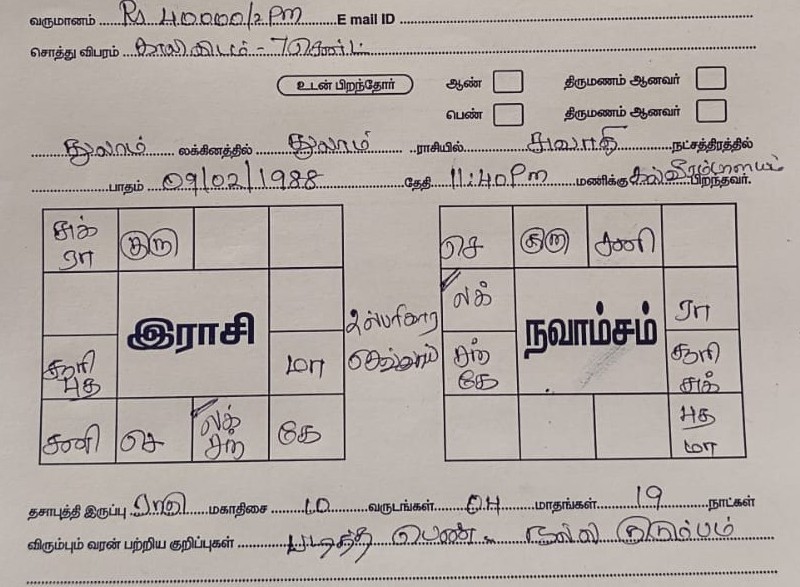 வருமானம் Rs 40000/2 Pm E mail ID
சொத்து விபரம் காலியிடம் - 7 சென்ட்
உடன் பிறந்தோர் ஆண் திருமணம் ஆனவர்
பெண் திருமணம் ஆனவர்
துலாம் லக்கினத்தில் துலாம் ராசியில் சுவாதி நட்சத்திரத்தில்
பாதம் 09/02/1988 தேதி 11:40 Pm மணிக்கு கல்வீரம்பாளையம் பிறந்தவர்.
சுக் ரா
குரு
இராசி
சூரி புத
மா
சனி
செ
லக் சந்
கே
பரிகார செவ்வாய்
செ
குரு
சனி
லக்
நவாம்சம்
ரா
சந் கே
சூரி சுக்
புத மா
தசாபுத்தி இருப்பு ராகு மகாதிசை 10 வருடங்கள் 04 மாதங்கள் 19 நாட்கள்
விரும்பும் வரன் பற்றிய குறிப்புகள் படித்த பெண். நல்ல குடும்பம்